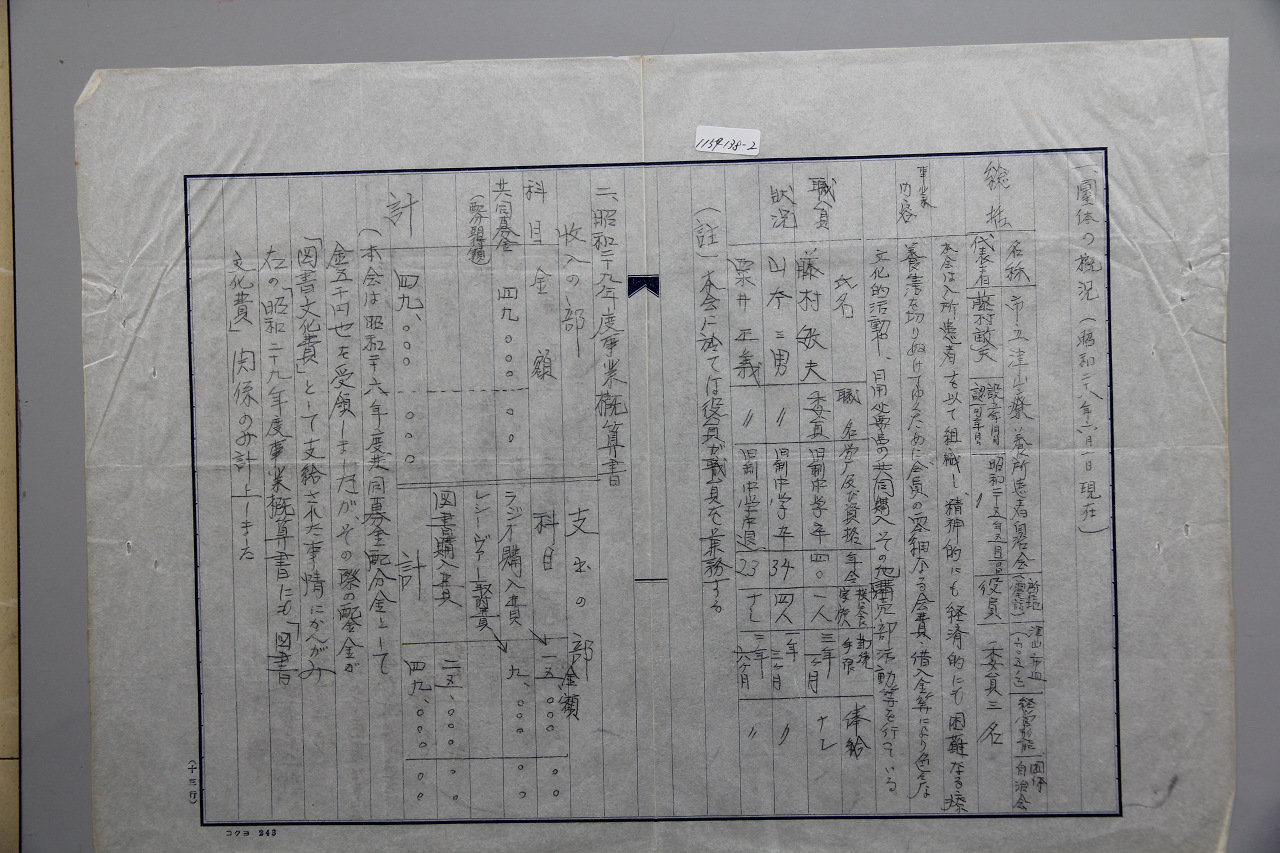 1154-138-2
一、團体の概況（昭和二十八年六月一日現在）
総括
名称 市立津山療養所患者自治会 所在 （電話） 津山市 経営形態 団体 自治会
代表者 藤村敏夫 設立年月 認可年月 昭和二十五年五月 〃 役員 委員三名
事業内容
本会は入所患者を以て組織し精神的にも経済的にも困難なる療
養生活を切りぬけてゆくために会員の零細なる会費、借入金等により色々な
文化的活動や、日用必需品の共同購入その他購売部活動等を行っている
職員状況
氏名 職名 学歴及び資格 年令 扶養家族 勤続年限 俸給
藤村敏夫 委員 旧制中学卒 四〇 一人 三年一ヶ月 ナシ
山本三男 〃 旧制中学卒 34 四人 一年三ヶ月 〃
栗井正義 〃 旧制中学中退 23 ナシ 二年六ヶ月 〃
（註）本会に於ては役員が職員を兼務する
二、昭和二十九年度事業概算書
収入の部
科目 金額
共同募金（配分希望額） 四九、〇〇〇 〇〇
計 四九、〇〇〇 〇〇〇
支出の部
科目 金額
ラジオ購入費 一五、〇〇〇 〇〇
レシーヴァー取付費 九、〇〇〇 〇〇
図書購入費 二五、〇〇〇 〇
計 四九、〇〇〇 〇〇
（本会は昭和二十六年度共同募金配分金として
金五千円也を受領しましたが、その際の配金が
「図書文化費」として支給された事情にかんがみ
右の「昭和二十九年度事業概算書にも「図書
文化費」関係のみ計上しました
（十三行）
コクヨ 243